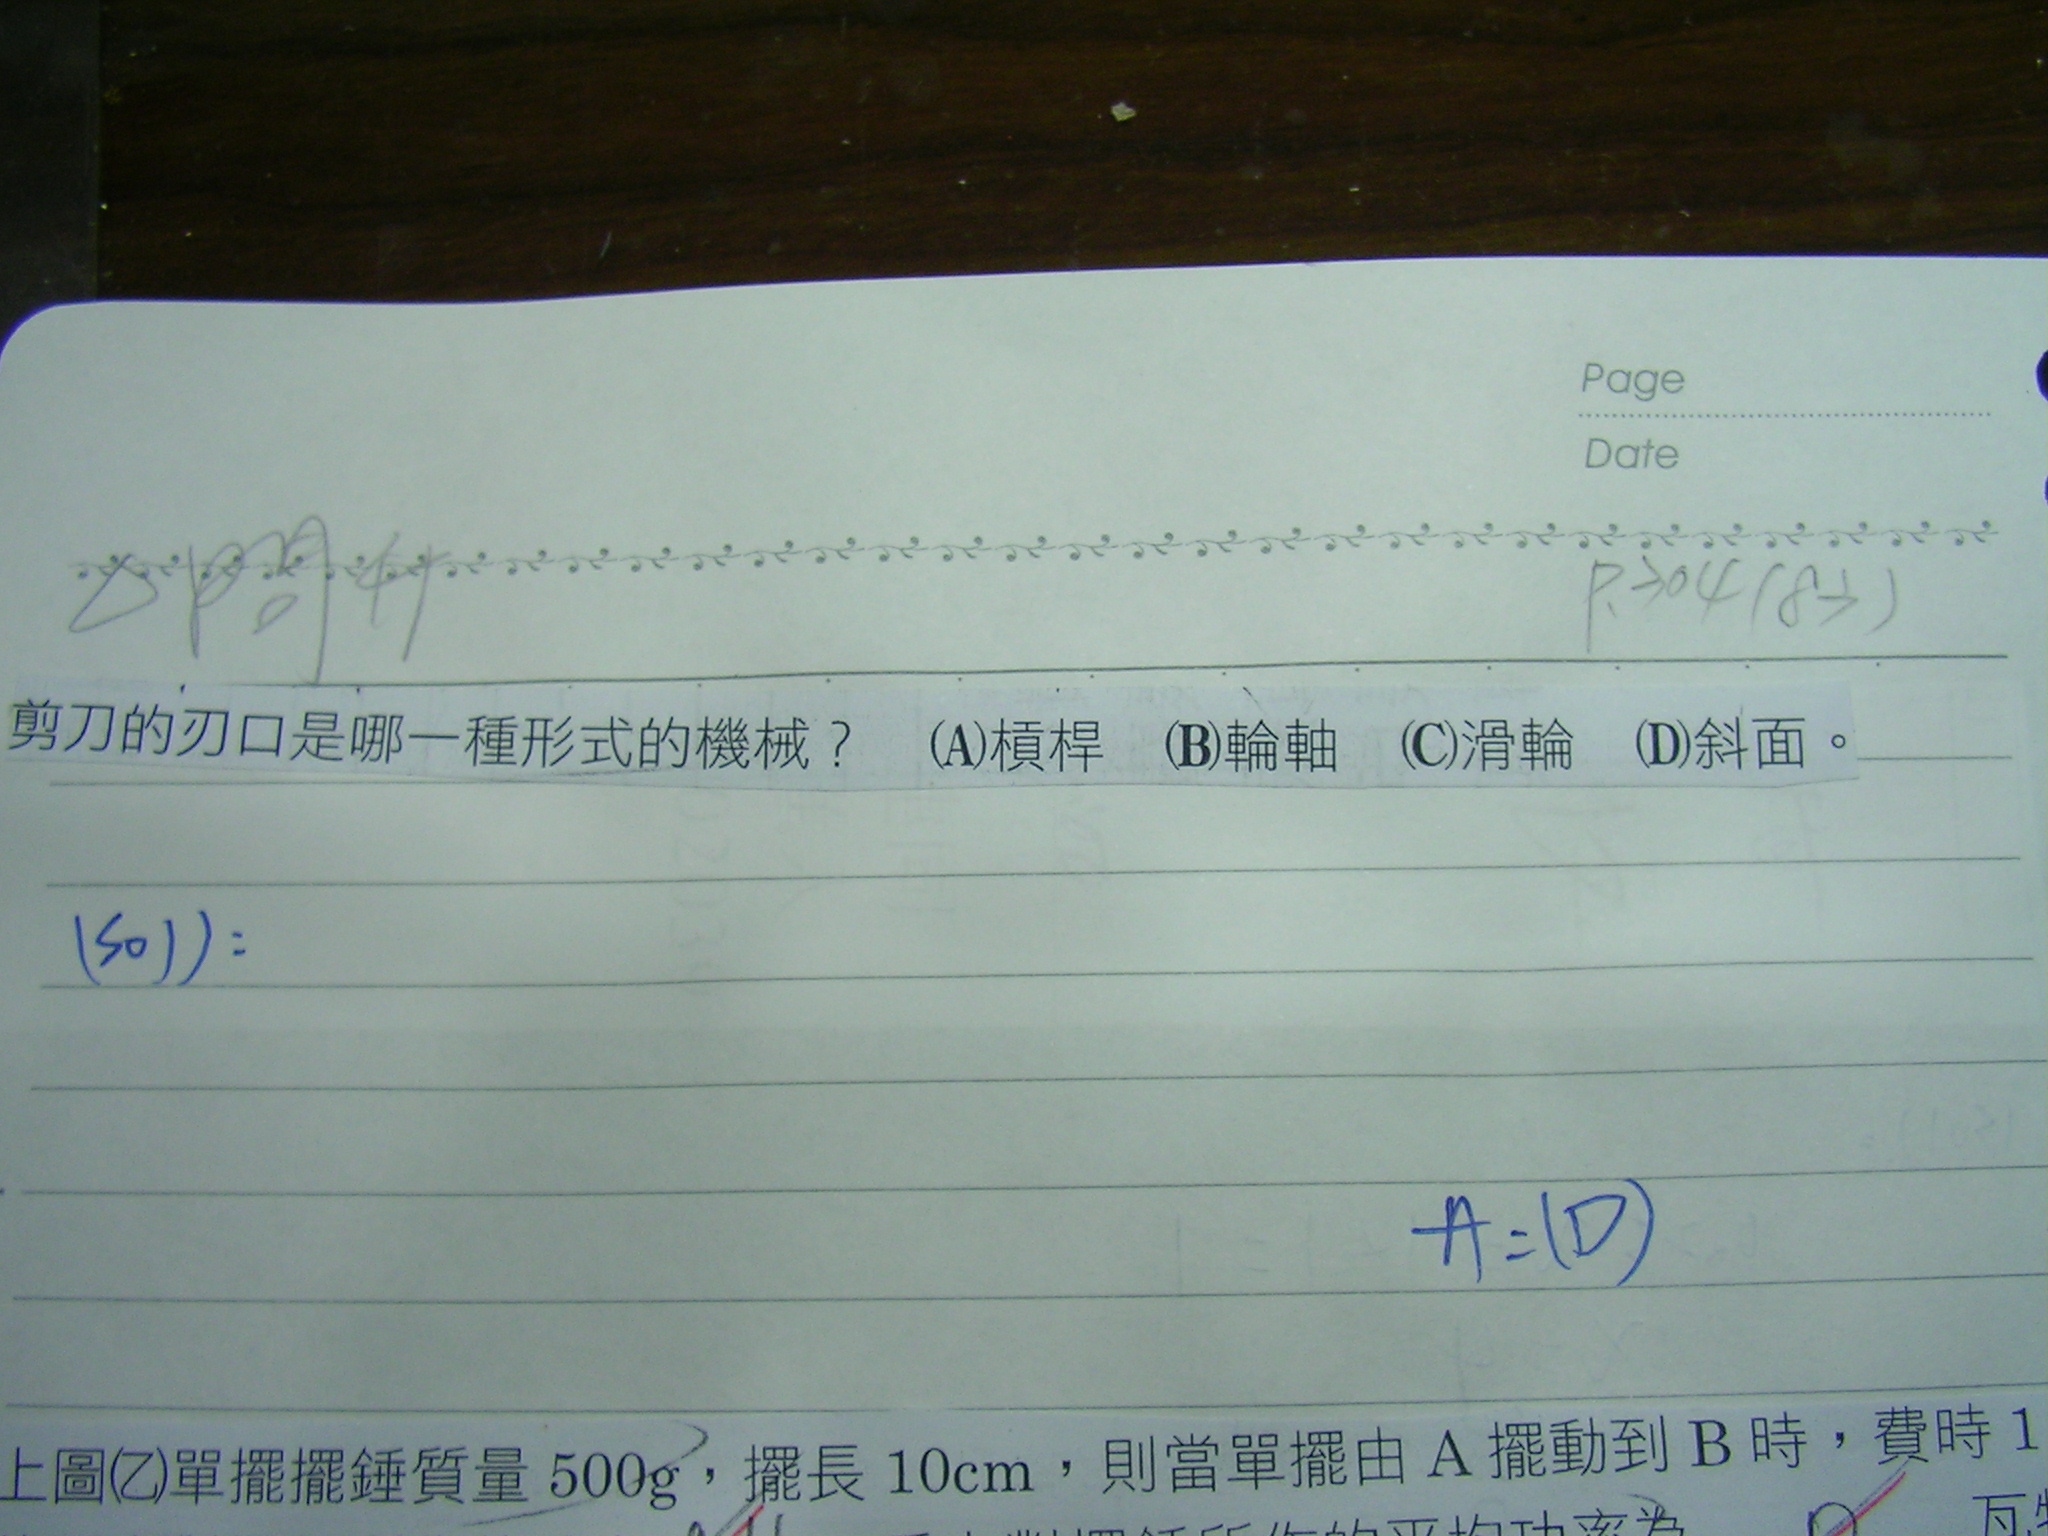 Page
Date
P.304 (8下)
剪刀的刃口是哪一種形式的機械？ (A)槓桿 (B)輪軸 (C)滑輪 (D)斜面。
(sol):
A=(D)
上圖(乙)單擺擺錘質量 500g，擺長 10cm，則當單擺由 A 擺動到 B 時，費時 1
所作的平均功率為